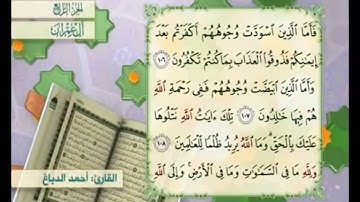 الجزء الرابع
آل عمران
فَأَمَّا الَّذِينَ اسْوَدَّتْ وُجُوهُهُمْ أَكَفَرْتُم بَعْدَ
إِيمَٰنِكُمْ فَذُوقُوا الْعَذَابَ بِمَا كُنتُمْ تَكْفُرُونَ ١٠٦
وَأَمَّا الَّذِينَ ابْيَضَّتْ وُجُوهُهُمْ فَفِي رَحْمَةِ اللَّهِ
هُمْ فِيهَا خَٰلِدُونَ ١٠٧ تِلْكَ ءَايَٰتُ اللَّهِ نَتْلُوهَا
عَلَيْكَ بِالْحَقِّ وَمَا اللَّهُ يُرِيدُ ظُلْمًا لِّلْعَٰلَمِينَ ١٠٨
وَلِلَّهِ مَا فِي السَّمَٰوَٰتِ وَمَا فِي الْأَرْضِ وَإِلَى اللَّهِ
القارئ: أحمد الدباغ